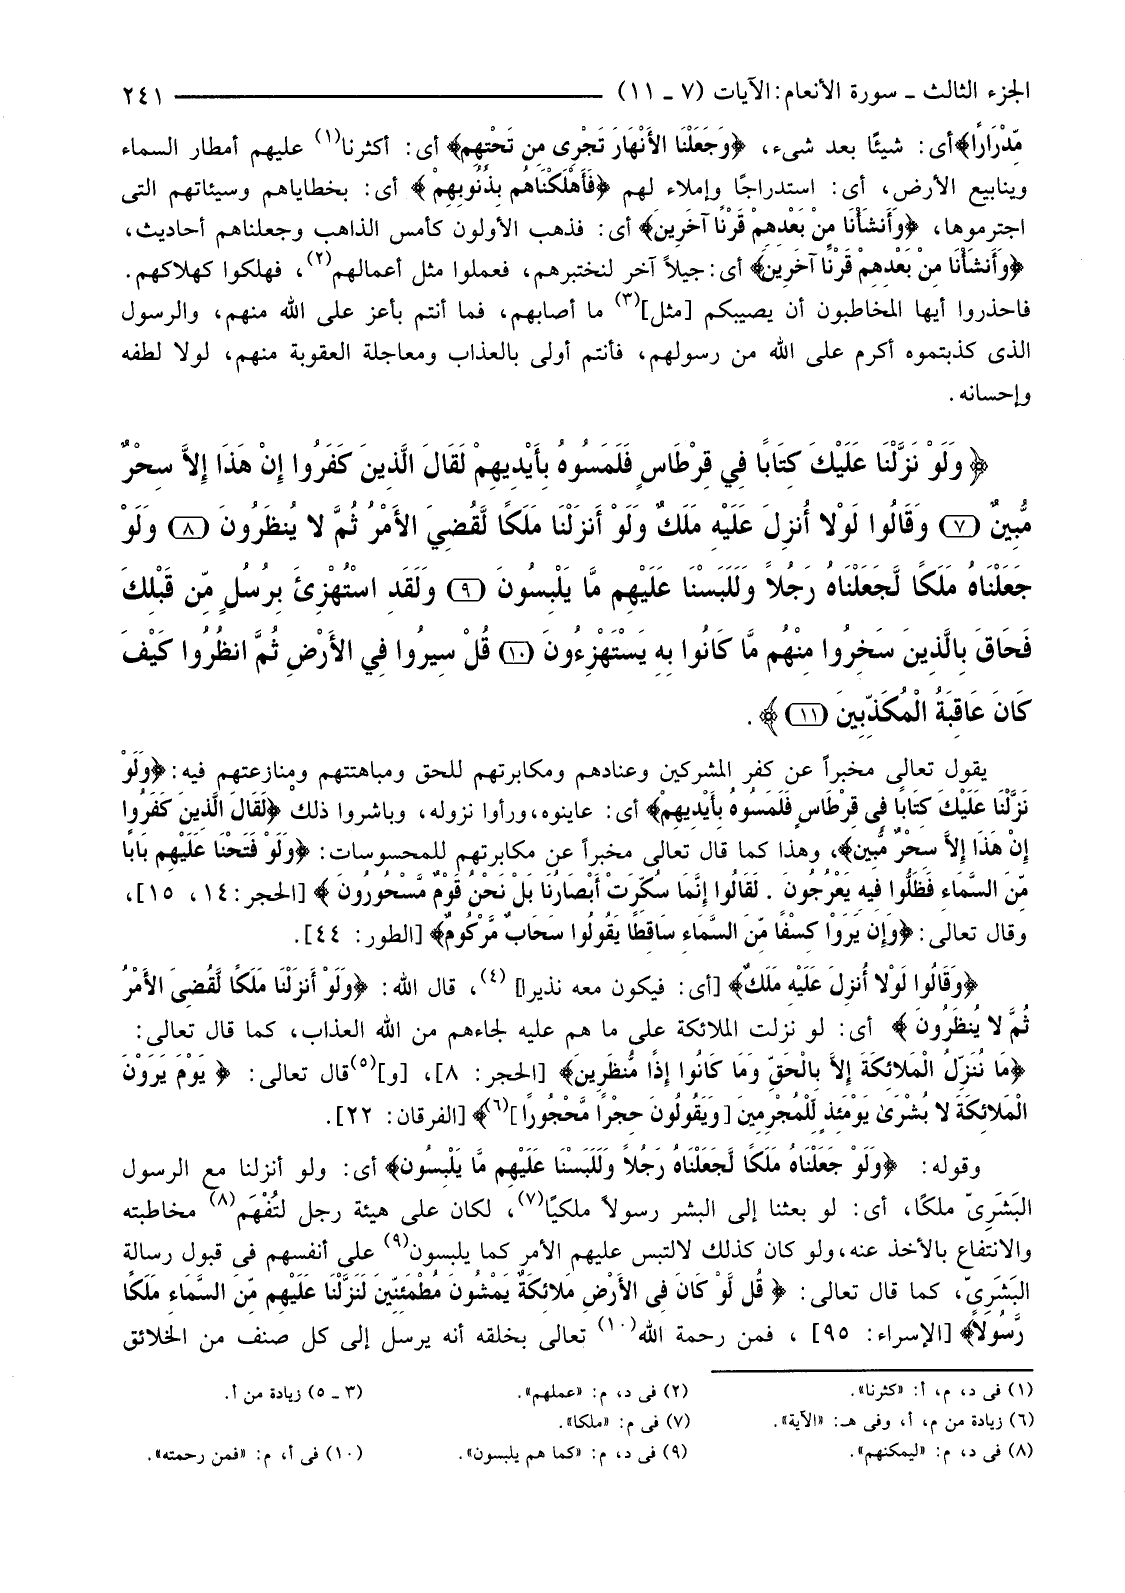 الجزء الثالث ـ سورة الأنعام: الآيات (٧ ـ ١١) ــــــــــــــ ٢٤١
مِّدْرَارًا﴾ أى: شيئًا بعد شىء، ﴿وَجَعَلْنَا الأَنْهَارَ تَجْرِى مِن تَحْتِهِم﴾ أى: أكثرنا(١) عليهم أمطار السماء
وينابيع الأرض، أى: استدراجًا وإملاء لهم ﴿فَأَهْلَكْنَاهُم بِذُنُوبِهِمْ ﴾ أى: بخطاياهم وسيئاتهم التى
اجترموها، ﴿وَأَنشَأْنَا مِنْ بَعْدِهِمْ قَرْنًا آخَرِينَ﴾ أى: فذهب الأولون كأمس الذاهب وجعلناهم أحاديث،
﴿وَأَنشَأْنَا مِنْ بَعْدِهِم قَرْنًا آخَرِينَ﴾ أى: جيلاً آخر لنختبرهم، فعملوا مثل أعمالهم(٢)، فهلكوا كهلاكهم.
فاحذروا أيها المخاطبون أن يصيبكم [مثل](٣) ما أصابهم، فما أنتم بأعز على الله منهم، والرسول
الذى كذبتموه أكرم على الله من رسولهم، فأنتم أولى بالعذاب ومعاجلة العقوبة منهم، لولا لطفه
وإحسانه.
﴿ وَلَوْ نَزَّلْنَا عَلَيْكَ كِتَابًا فِي قِرْطَاسٍ فَلَمَسُوهُ بِأَيْدِيهِمْ لَقَالَ الَّذِينَ كَفَرُوا إِنْ هَذَا إِلاَّ سِحْرٌ
مُّبِينٌ (٧) وَقَالُوا لَوْلا أُنزِلَ عَلَيْهِ مَلَكٌ وَلَوْ أَنزَلْنَا مَلَكًا لَّقُضِيَ الأَمْرُ ثُمَّ لا يُنظَرُونَ (٨) وَلَوْ
جَعَلْنَاهُ مَلَكًا لَّجَعَلْنَاهُ رَجُلاً وَلَلَبَسْنَا عَلَيْهِم مَّا يَلْبِسُونَ (٩) وَلَقَدِ اسْتُهْزِئَ بِرُسُلٍ مِّن قَبْلِكَ
فَحَاقَ بِالَّذِينَ سَخِرُوا مِنْهُم مَّا كَانُوا بِهِ يَسْتَهْزِءُونَ (١٠) قُلْ سِيرُوا فِي الأَرْضِ ثُمَّ انظُرُوا كَيْفَ
كَانَ عَاقِبَةُ الْمُكَذِّبِينَ (١١) ﴾ .
يقول تعالى مخبراً عن كفر المشركين وعنادهم ومكابرتهم للحق ومباهتتهم ومنازعتهم فيه: ﴿وَلَوْ
نَزَّلْنَا عَلَيْكَ كِتَابًا فِى قِرْطَاسٍ فَلَمَسُوهُ بِأَيْدِيهِمْ﴾ أى: عاينوه، ورأوا نزوله، وباشروا ذلك ﴿لَقَالَ الَّذِينَ كَفَرُوا
إِنْ هَذَا إِلاَّ سِحْرٌ مُّبِين﴾، وهذا كما قال تعالى مخبراً عن مكابرتهم للمحسوسات: ﴿وَلَوْ فَتَحْنَا عَلَيْهِم بَابًا
مِّنَ السَّمَاءِ فَظَلُّوا فِيهِ يَعْرُجُونَ . لَقَالُوا إِنَّمَا سُكِّرَتْ أَبْصَارُنَا بَلْ نَحْنُ قَوْمٌ مَّسْحُورُونَ ﴾ [الحجر: ١٤، ١٥]،
وقال تعالى: ﴿وَإِن يَرَوْا كِسْفًا مِّنَ السَّمَاءِ سَاقِطًا يَقُولُوا سَحَابٌ مَّرْكُومٌ﴾ [الطور: ٤٤].
﴿وَقَالُوا لَوْلا أُنزِلَ عَلَيْهِ مَلَكٌ﴾ [أى: فيكون معه نذيرا] (٤)، قال الله: ﴿وَلَوْ أَنزَلْنَا مَلَكًا لَّقُضِىَ الأَمْرُ
ثُمَّ لا يُنظَرُونَ ﴾ أى: لو نزلت الملائكة على ما هم عليه لجاءهم من الله العذاب، كما قال تعالى:
﴿مَا نُنَزِّلُ الْمَلائِكَةَ إِلاَّ بِالْحَقِّ وَمَا كَانُوا إِذًا مُّنظَرِينَ﴾ [الحجر: ٨]، [و](٥)قال تعالى: ﴿ يَوْمَ يَرَوْنَ
الْمَلائِكَةَ لا بُشْرَىٰ يَوْمَئِذٍ لِّلْمُجْرِمِينَ [وَيَقُولُونَ حِجْرًا مَّحْجُورًا ](٦)﴾ [الفرقان: ٢٢].
وقوله: ﴿وَلَوْ جَعَلْنَاهُ مَلَكًا لَّجَعَلْنَاهُ رَجُلاً وَلَلَبَسْنَا عَلَيْهِم مَّا يَلْبِسُون﴾ أى: ولو أنزلنا مع الرسول
البَشَرِىّ ملكًا، أى: لو بعثنا إلى البشر رسولاً ملكيًا(٧)، لكان على هيئة رجل لتُفْهَم(٨) مخاطبته
والانتفاع بالأخذ عنه، ولو كان كذلك لالتبس عليهم الأمر كما يلبسون(٩) على أنفسهم فى قبول رسالة
البَشَرِىّ، كما قال تعالى: ﴿ قُل لَّوْ كَانَ فِى الأَرْضِ مَلائِكَةٌ يَمْشُونَ مُطْمَئِنِّينَ لَنَزَّلْنَا عَلَيْهِم مِّنَ السَّمَاءِ مَلَكًا
رَّسُولاً﴾ [الإسراء: ٩٥] ، فمن رحمة الله(١٠) تعالى بخلقه أنه يرسل إلى كل صنف من الخلائق
(١) فى د، م، أ: «كثرنا». (٢) فى د، م: «عملهم». (٣ ـ ٥) زيادة من أ.
(٦) زيادة من م، أ، وفى هـ: «الآية». (٧) فى م: «ملكا».
(٨) فى د، م: «ليمكنهم». (٩) فى د، م: «كما هم يلبسون». (١٠) فى أ، م: «فمن رحمته».